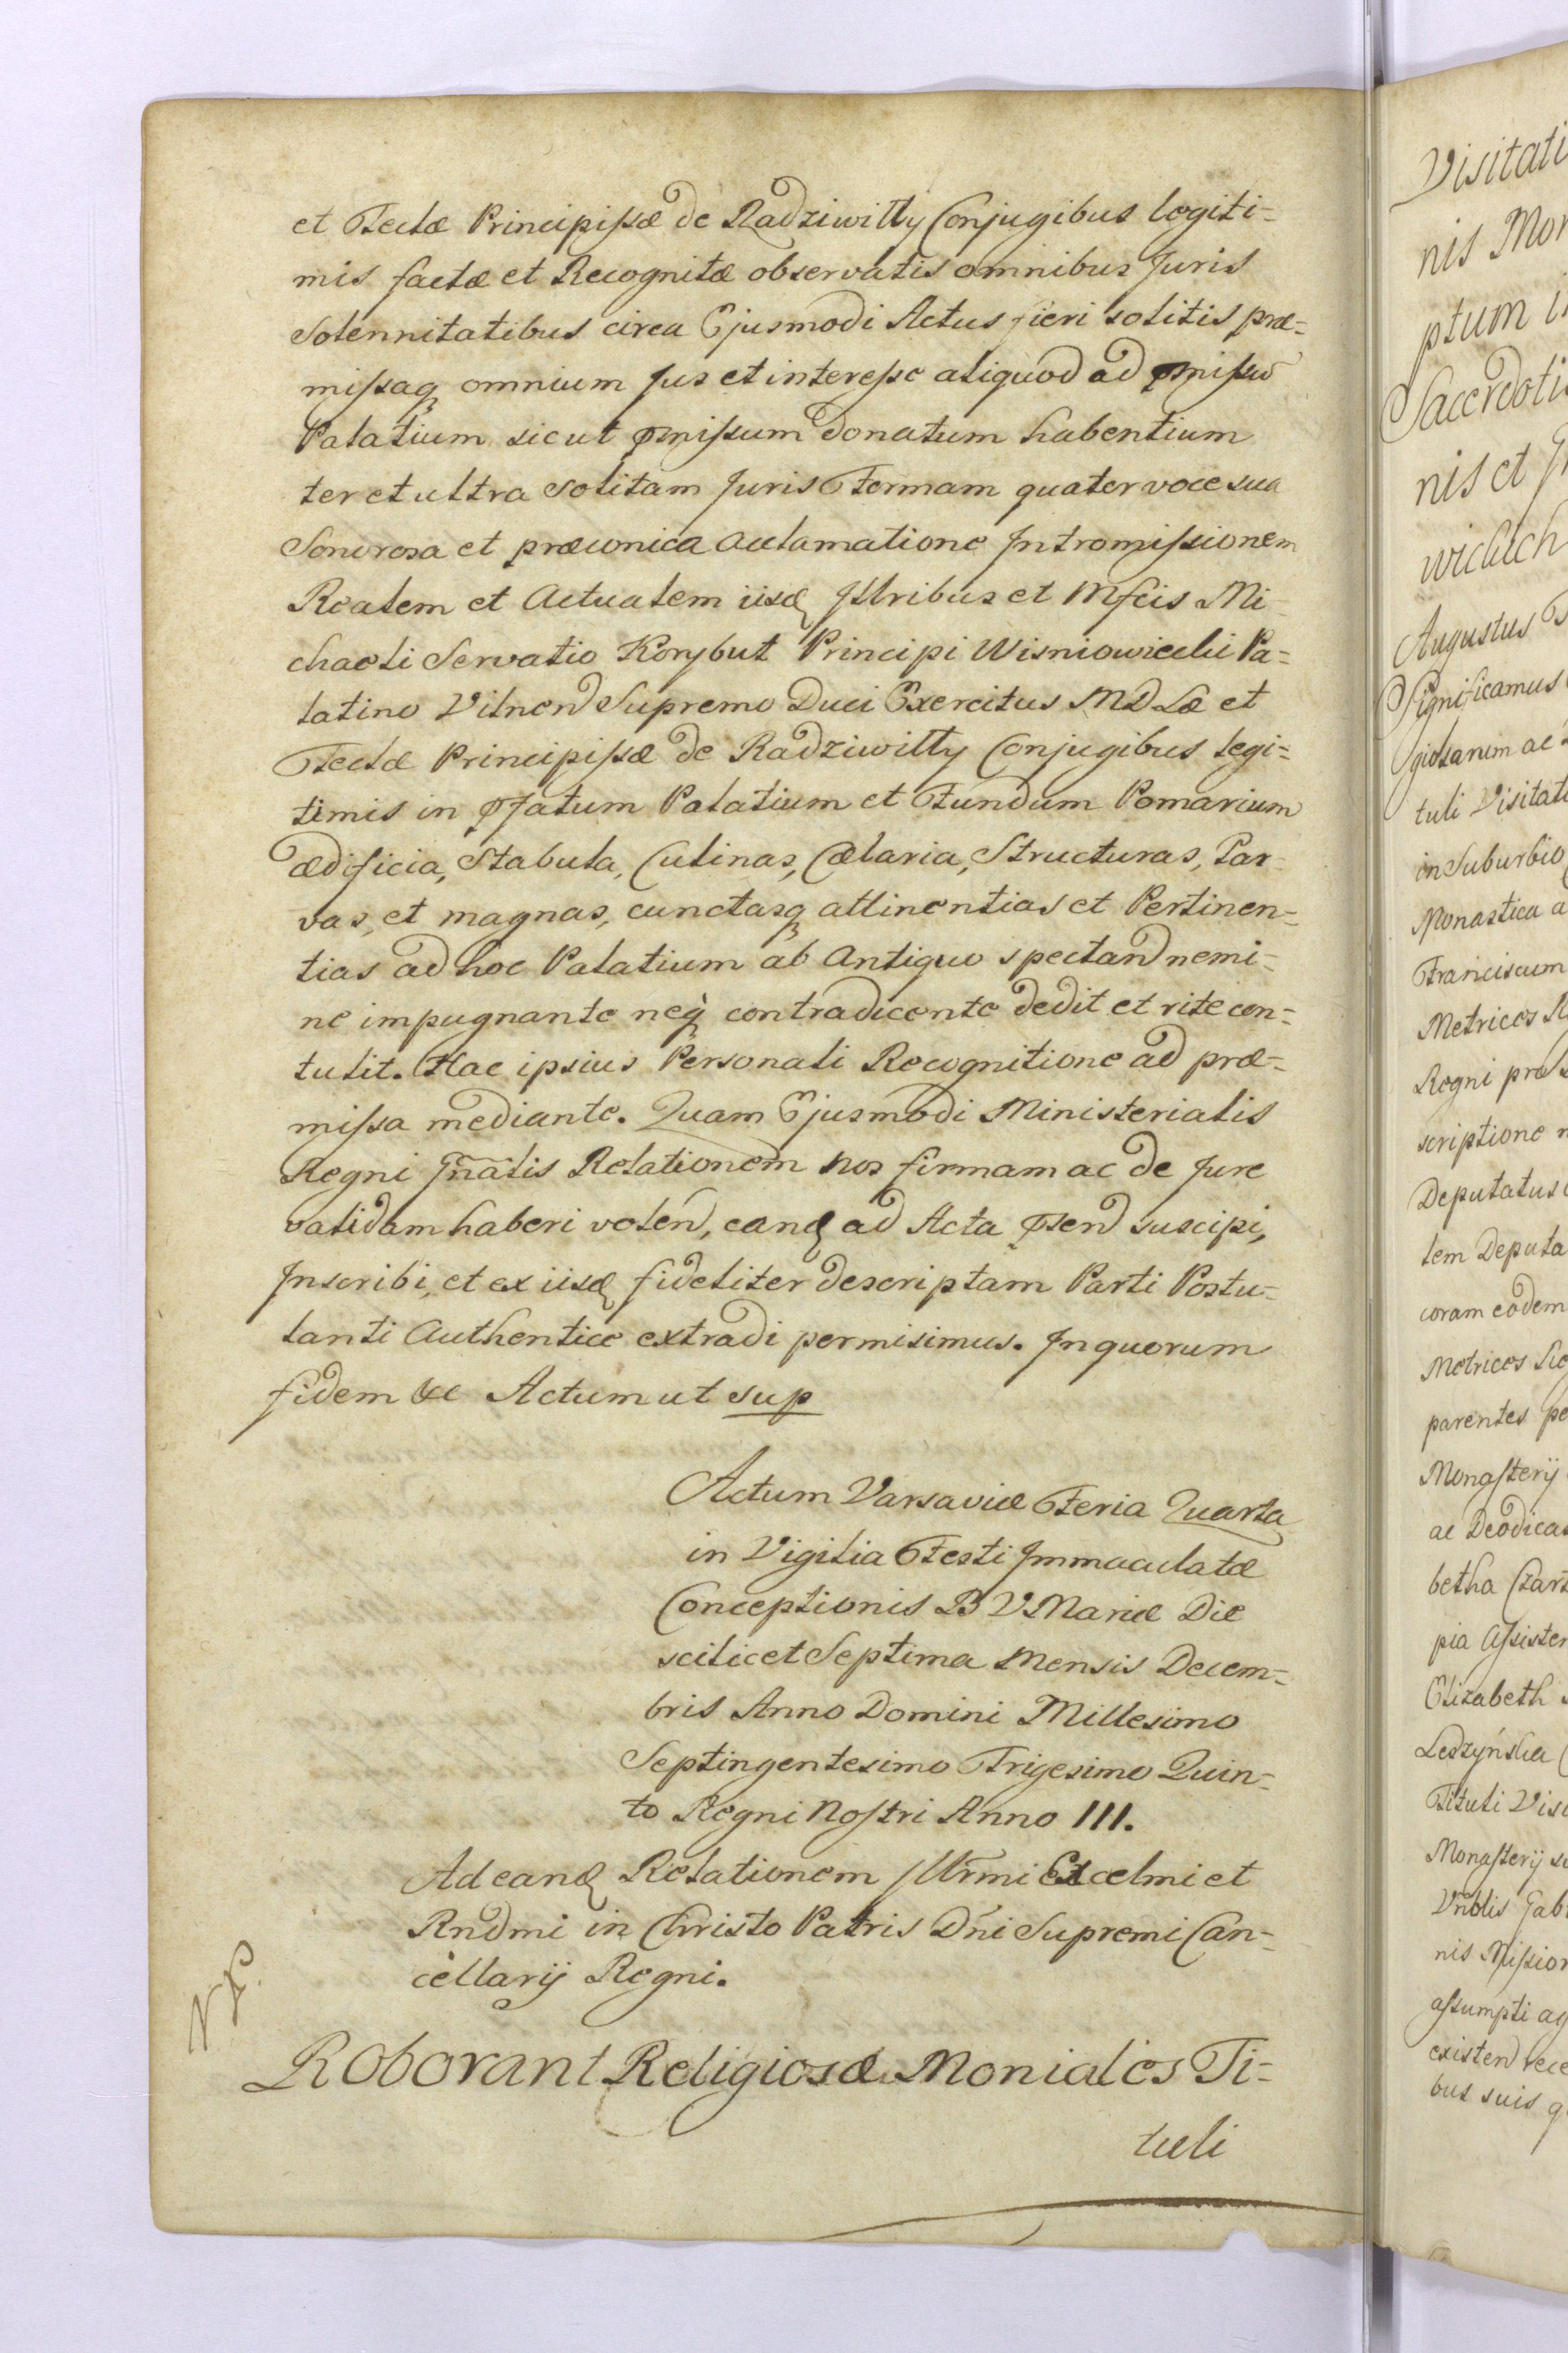 et Teclæ Principissæ de Radziwiłły Conjugibus legiti=
mis factæ et Recognitæ observatis omnibus Juris
Solennitatibus circa Ejusmodi Actus fieri solitis præ=
missaq omnium Jus et interesse aliquod ad pmissu
Palatium sicut pmissum donatum habentium
ter et ultra solitam Juris Formam quater voce sua
Sonorosa et præconica acclamatione Intromissionem
Realem et Actualem iisd Illribus et Mfcis Mi-
chaeli Servatio Korybut Principi Wisniowiecki Pa=
latino Vilnen Supremo Duci Exercitus M D Læ et
Teclæ Principissæ de Radziwiłły Conjugibus legi=
timis in pfatum Palatium et Fundum Pomarium
ædificia, Stabula, Culinas, Cælaria, Structuras, Par-
vas, et magnas, cunctasq attinentias et Pertinen=
tias ad hoc Palatium ab Antiquo spectand nemi=
ne impugnante neq contradicente dedit et rite con=
tulit. Hac ipsius Personali Recognitione ad præ=
missa mediante. Quam Ejusmodi Ministerialis
Regni Gnalis Relationem nos firmam ac de Jure
validam haberi volen, eand ad Acta psen suscipi,
Inscribi, et ex iisd fideliter descriptam Parti Postu=
lanti Authentice extradi permisimus. In quorum
fidem &c Actum ut sup
Actum Varsaviæ Feria Quarta
in Vigilia Festi Immaculatæ
Conceptionis B V Mariæ Die
scilicet Septima Mensis Decem=
bris Anno Domini Millesimo
Septingentesimo Trigesimo Quin=
to Regni Nostri Anno III.
Ad eand Relationem Illrmi Excelmi et
Rndmi in Christo Patris Dni Supremi Can=
cellarij Regni.
Roborant Religiosæ Moniales Ti=
tuli
Visitati
nis Mon
ptum i
Sacerdoti
nis et
wickich
Augustus
Significamus
giosarum ac
tuli Visitati
in Suburbio
Monastica a
Franciscum
Metrices
Regni præ
scriptione
Deputatus
tem Deputa
coram eodem
Metrices
parentes pe
Monasterij
ac Deo dicas
betha Czar
pia Assisten
Elizabeth
Ledzyńska
Tituli Visi
Monasterij
Vnblis Gab
nis Mission
assumpti
existen rece
bus suis q